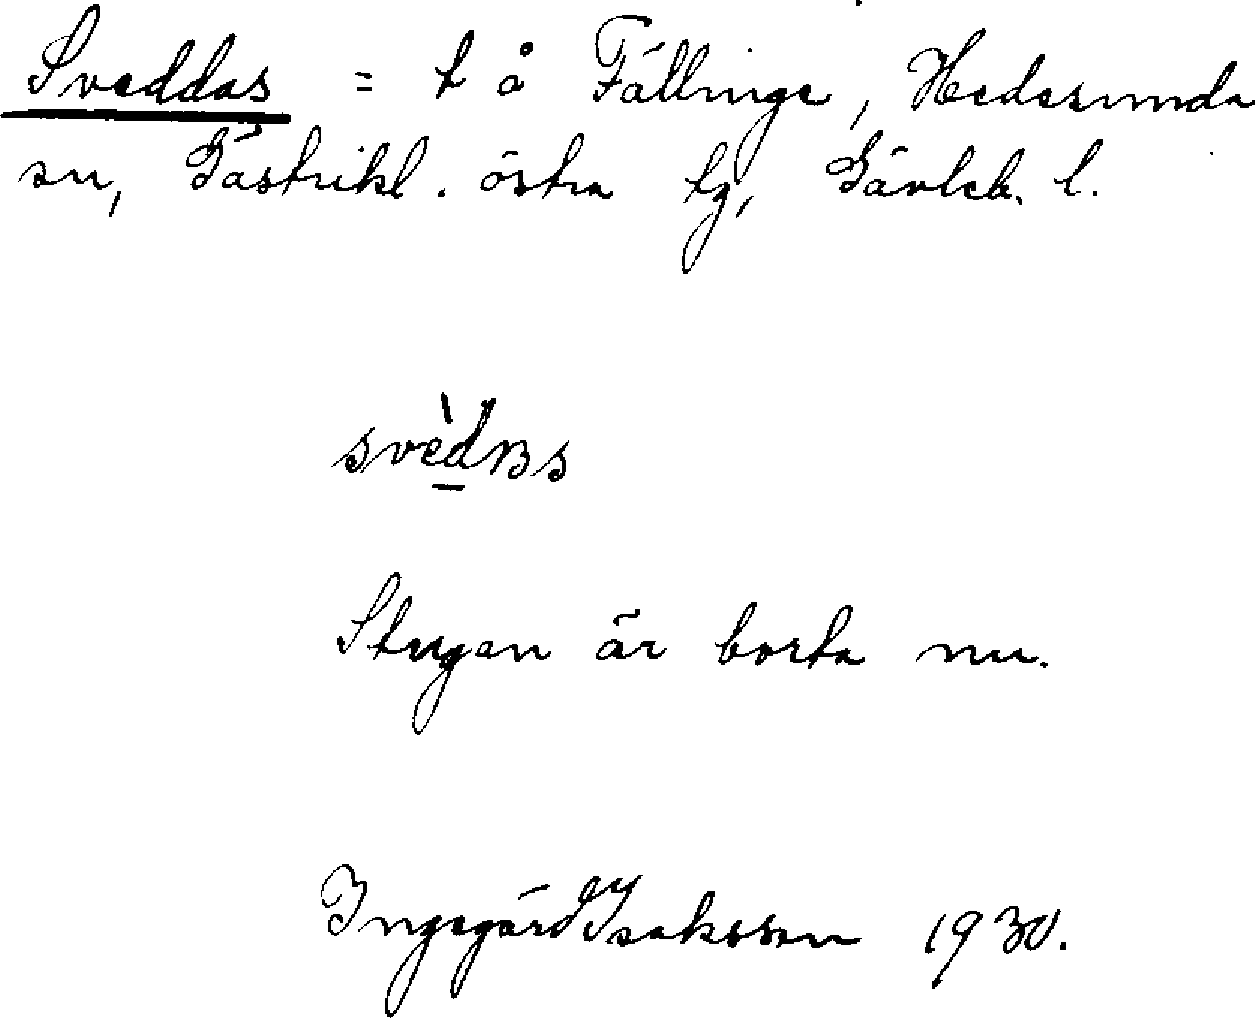 Sveddas = t å Fällinge, Hedesunda
sn, Gästrikl. östra tg, Gävleb. l.
svèdʙs
Stugan är borta nu.
Ingegärd Isaksson 1930.